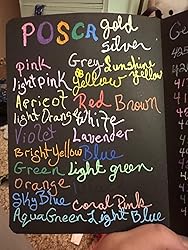 POSCA gold
silver
pink Grey Sunshine
light pink yellow yellow
Apricot Red Brown
light Orang White
Violet Lavender
Bright Yellow Blue
Green light green
Orange
Sky Blue Coral Pink
Aqua Green Light Blue